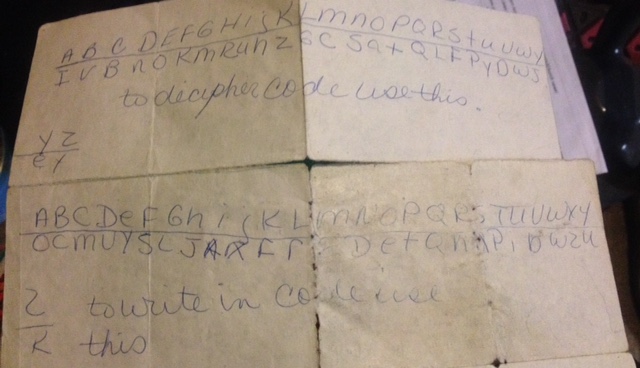 A B C D E F G H i j K L m n O P Q R S t u V W X Y
I V B n O K m R u h Z G C S a t Q L F P Y D W S
to decipher code use this.
Y Z
E Y
A B C D e F G h i j K L m N O P Q R S T U V W X Y
O C M U Y S L J A X F
Z to write in code use
R this